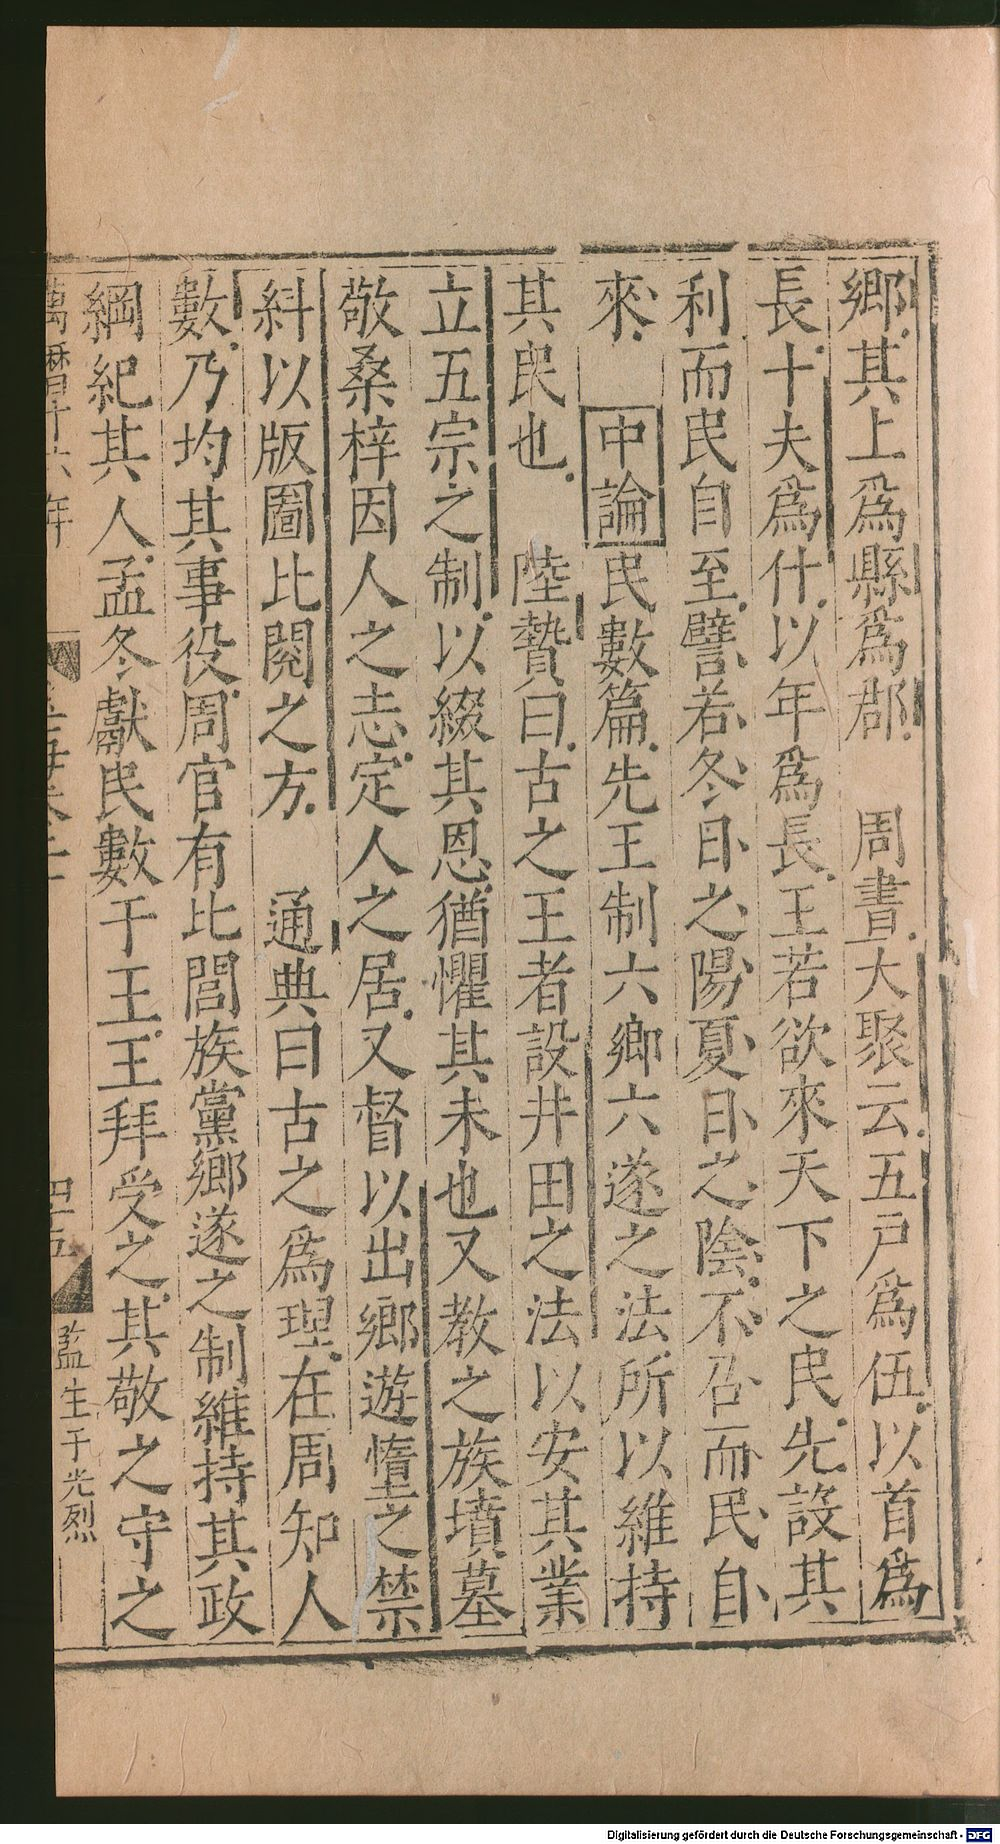 鄉其上爲縣爲郡　周書大聚云五戸爲伍以首爲
長十夫爲什以年爲長王若欲來天下之民先設其
利而民自至譬若冬日之陽夏日之陰不召而民自
來　中論民數篇先王制六鄉六遂之法所以維持
其民也　陸贄曰古之王者設井田之法以安其業
立五宗之制以綴其恩猶懼其未也又教之族墳墓
敬桑梓因人之志定人之居又督以出鄉遊惰之禁
糾以版圖比閱之方　通典曰古之爲理在周知人
數乃均其事役周官有比閭族黨鄉遂之制維持其政
綱紀其人孟冬獻民數于王王拜受之其敬之守之
萬曆十六年
四十五
監生于光烈
Digitalisierung gefördert durch die Deutsche Forschungsgemeinschaft - DFG